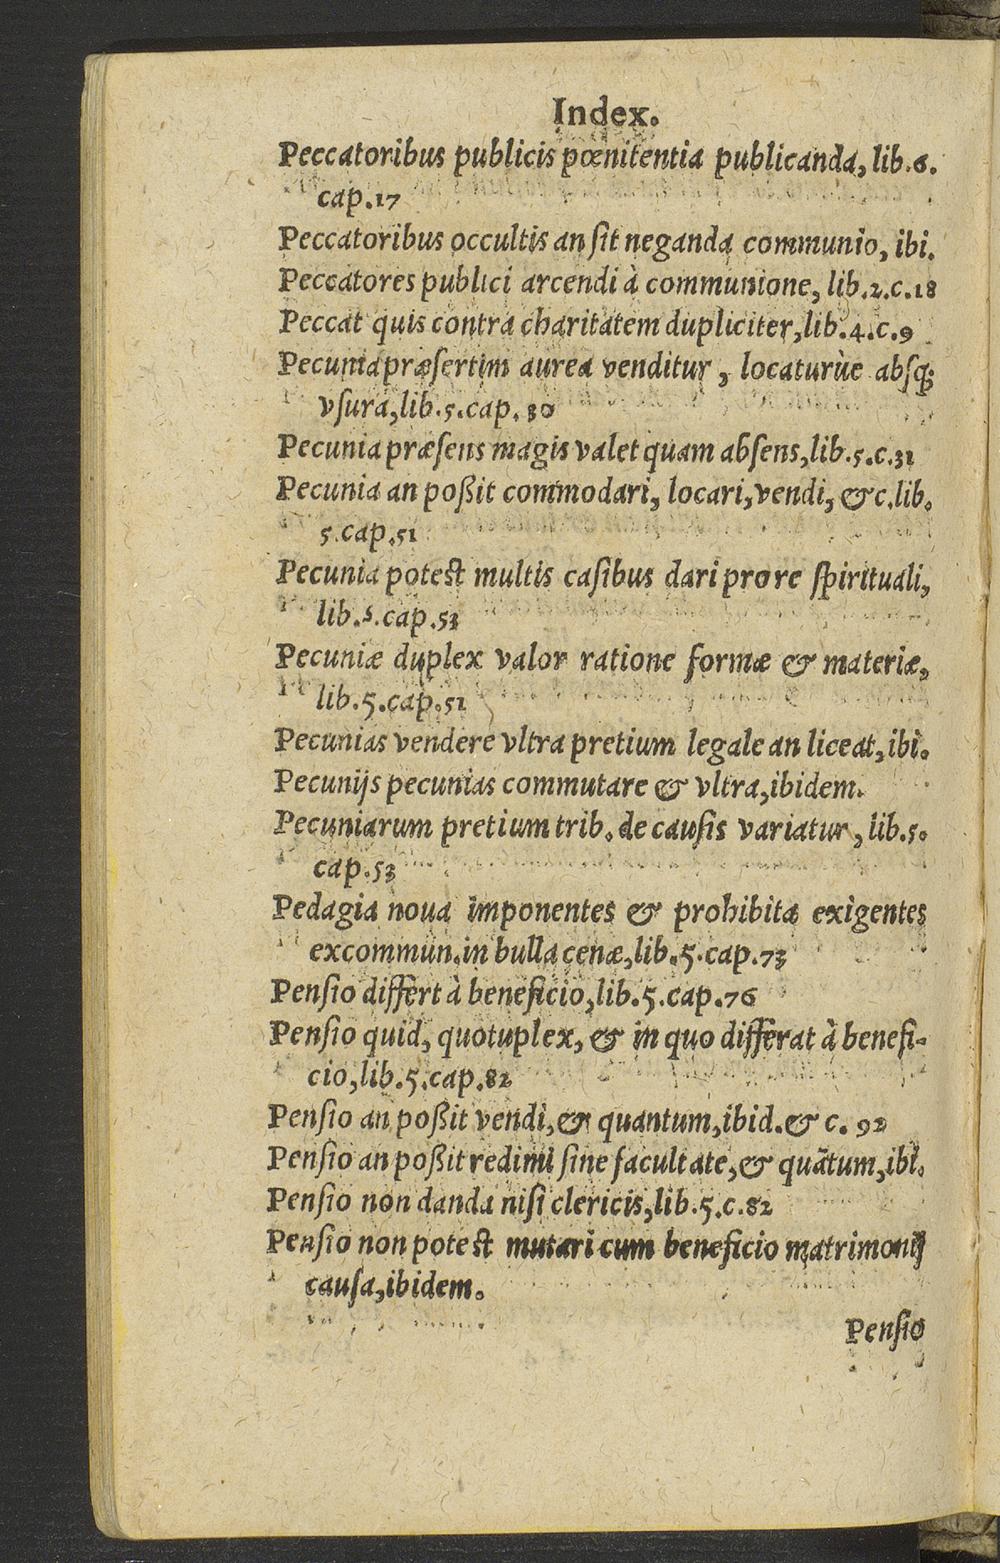 Index.
Peccatoribus publicis pœnitentia publicanda, lib.6.
cap.17
Peccatoribus occultis an ſit neganda communio, ibi.
Peccatores publici arcendi à communione, lib.2.c.18
Peccat quis contra charitatem dupliciter, lib.4.c.9
Pecunia præſertim aurea venditur, locaturùe abſq;
vſura, lib.5.cap.30
Pecunia præſens magis valet quam abſens, lib.5.c.31
Pecunia an poßit commodari, locari, vendi, &c. lib.
5.cap.51
Pecunia poteſt multis caſibus dari pro re ſpirituali,
lib.5.cap.53
Pecuniæ duplex valor ratione formæ & materiæ,
lib.5.cap.51
Pecunias vendere vltra pretium legale an liceat, ibi.
Pecunijs pecunias commutare & vltra, ibidem.
Pecuniarum pretium trib. de cauſis variatur, lib.5.
cap.53
Pedagia noua imponentes & prohibita exigentes
excommun. in bulla cenæ, lib.5.cap.73
Penſio differt à beneficio, lib.5.cap.76
Penſio quid, quotuplex, & in quo differat à benefi-
cio, lib.5.cap.82
Penſio an poßit vendi, & quantum, ibid. & c. 92
Penſio an poßit redimi ſine facultate, & quãtum, ibi.
Penſio non danda niſi clericis, lib.5.c.82
Penſio non poteſt mutari cum beneficio matrimonij
cauſa, ibidem.
Penſio